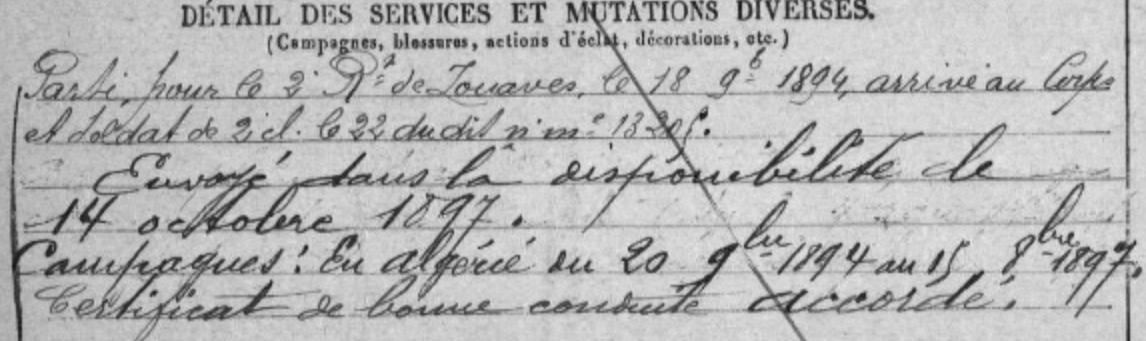 DÉTAIL DES SERVICES ET MUTATIONS DIVERSES.
(Campagnes, blessures, actions d'éclat, décorations, etc.)
Parti, pour le 2e Rt de Zouaves, le 18 9b 1894, arrivé au Corps
et soldat de 2 cl. le 22 du dit n° me
Envoyé dans la disponibilité le
14 octobre 1897.
Campagnes: En Algérie du 20 9bre 1894 au 15 8bre 1897,
Certificat de bonne conduite accordé.